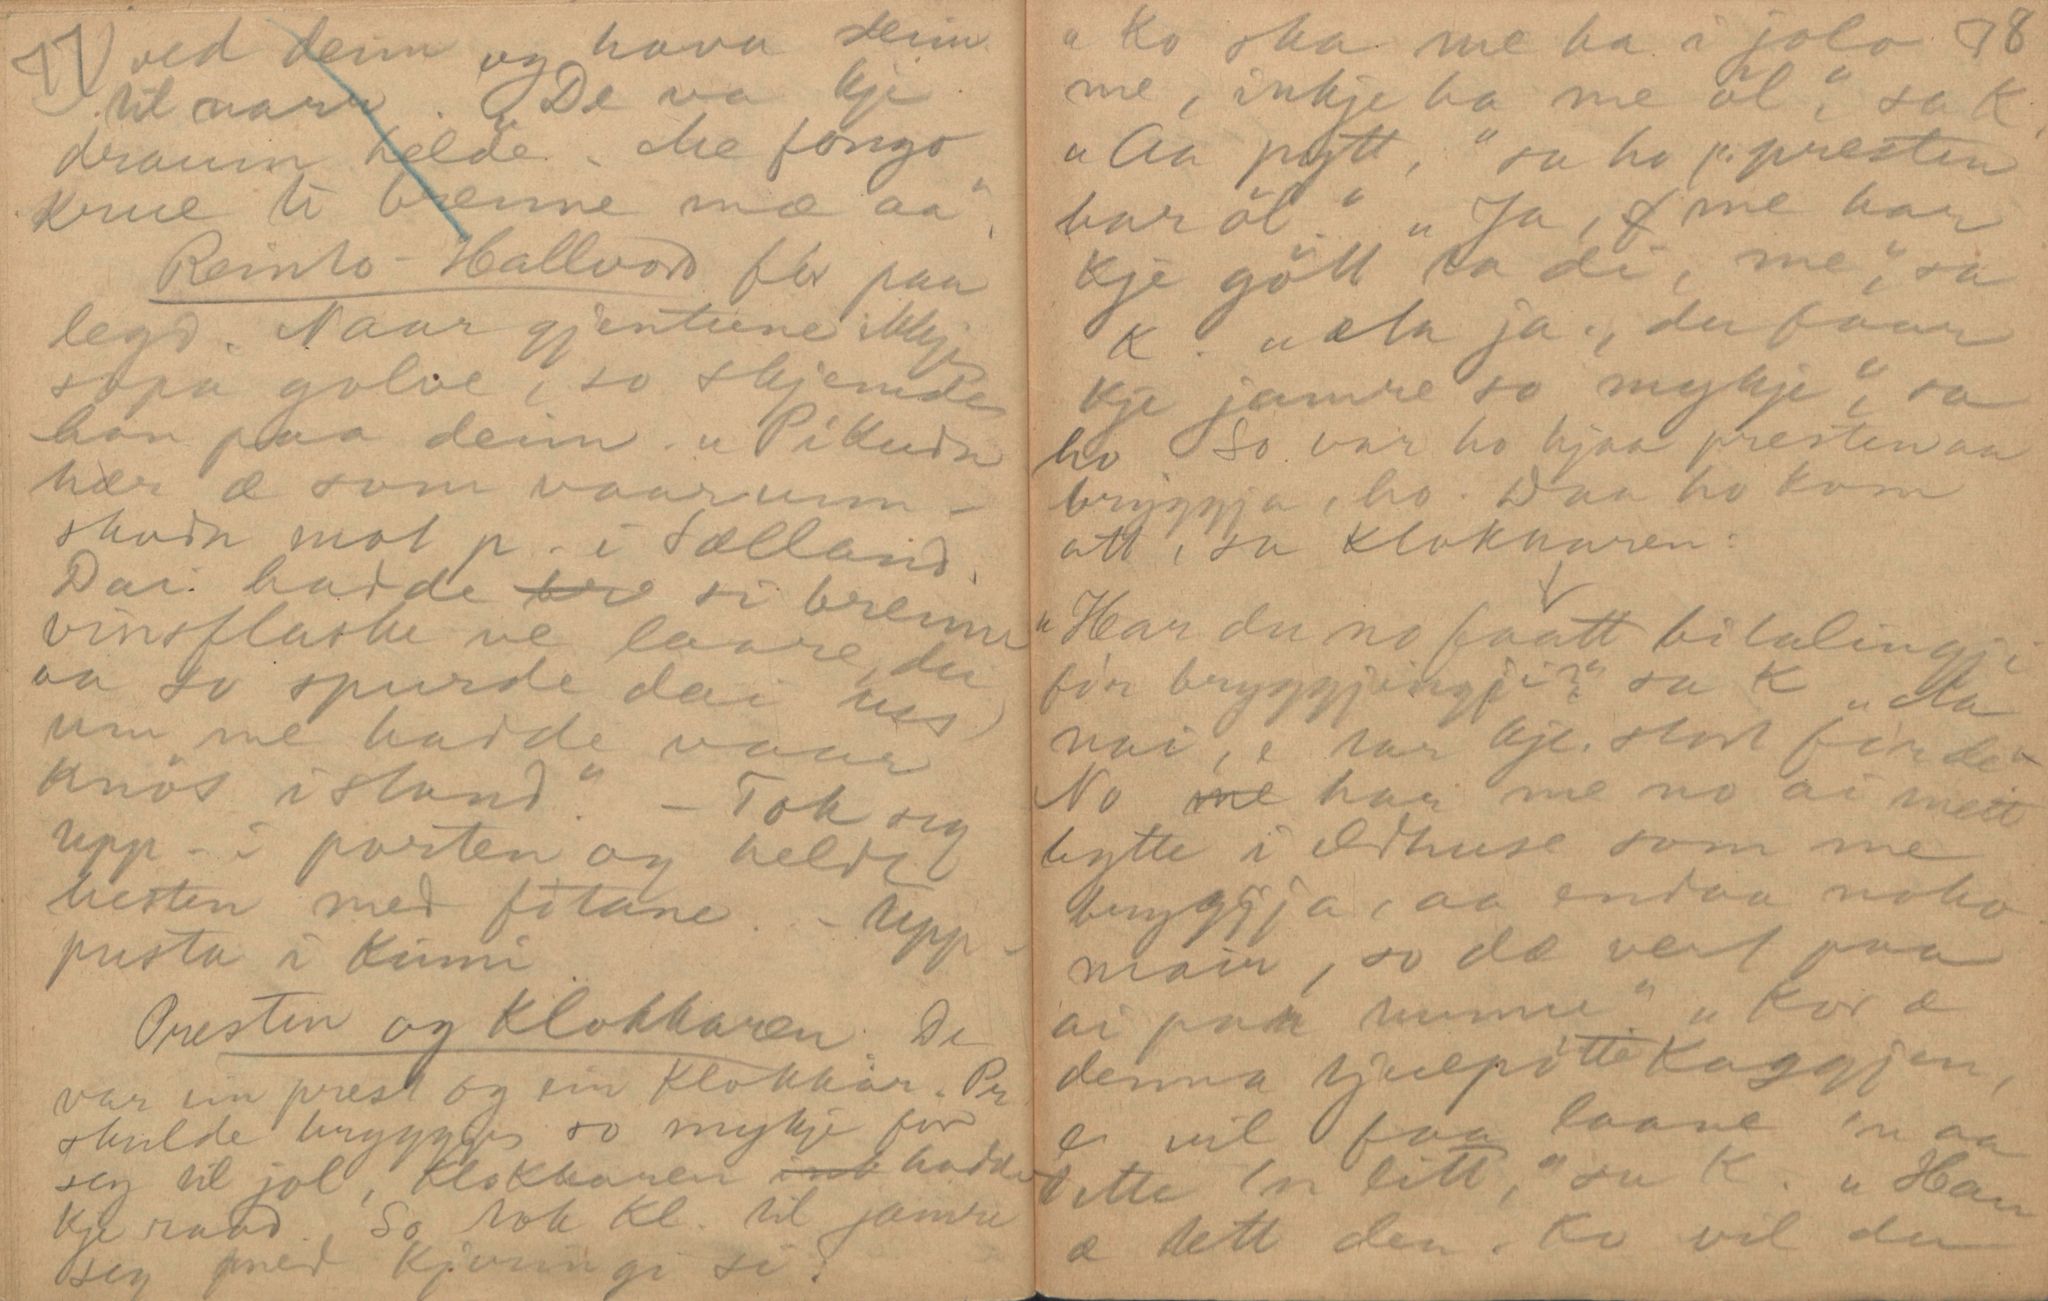 77 ved deim og hava deim
til narr. "De va kje
draum helde. Me fongo
krue ti brenne mæ aa".
Reinto-Hallvord for paa
legd. Naar gjentune ikkje
sopa golve, so skjemdes
han paa deim. "Pikudn
hær æ som vaar um-
skodn mot p. i Sælland.
Dai hadde bre si brenne
vinsflaske ve laare, dei
aa so spurde dai uss
um me hadde vaar
knös i stand" - Tok seg
upp i porten og heldt
hesten med fötane. - Upp-
pusta i Kinni.
Presten og Klokkaren. De
var ein prest og ein Klokkar. Pr
skulde bryggja so mykje for
seg til jol, Klokkaren ink hadde
kje raad. So tok Kl. til jamre
seg med kjæringi si:
78
"Ko ska me ha i jolo
me, inkje ha me öl", sa K.
"Aa pytt," sa ho, "presten
har öl." "Ja, me har
kje gött ta di, me", sa
K. "Aa ja, du faar
kje jamre so mykje", sa
ho. So var ho hjaa presten aa
bryggja, ho. Daa ho kom
att, sa Klokkaren:
"Har du no faatt bitalingji
för bryggjingji?" sa K. "Aa
nai, e har kje stort för de"
No me har me no ai mett
bytte i eldhuse som me
bryggja, aa endaa noko
mair, so dæ vert paa
ai paa tunne" "Kor æ
denna hjælpötte Kaggjen,
e vil faa laane 'n aa
tette 'n litt," sa K. "Han
æ tett den. Ko vil du